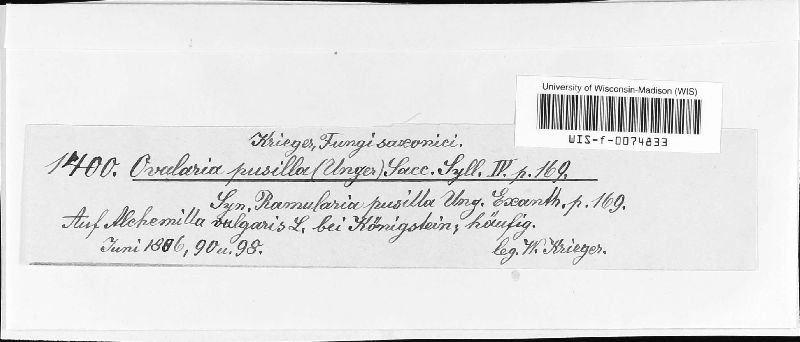 University of Wisconsin-Madison (WIS)
WIS-f-0074833
Krieger, Fungi saxonici.
1400. Ovularia pusilla (Unger) Sacc. Syll. IV. p. 169.
Syn. Ramularia pusilla Ung. Exanth. p. 169.
Auf Alchemilla vulgaris L. bei Königstein, häufig.
Juni 1886, 90 u. 98. leg. W. Krieger.